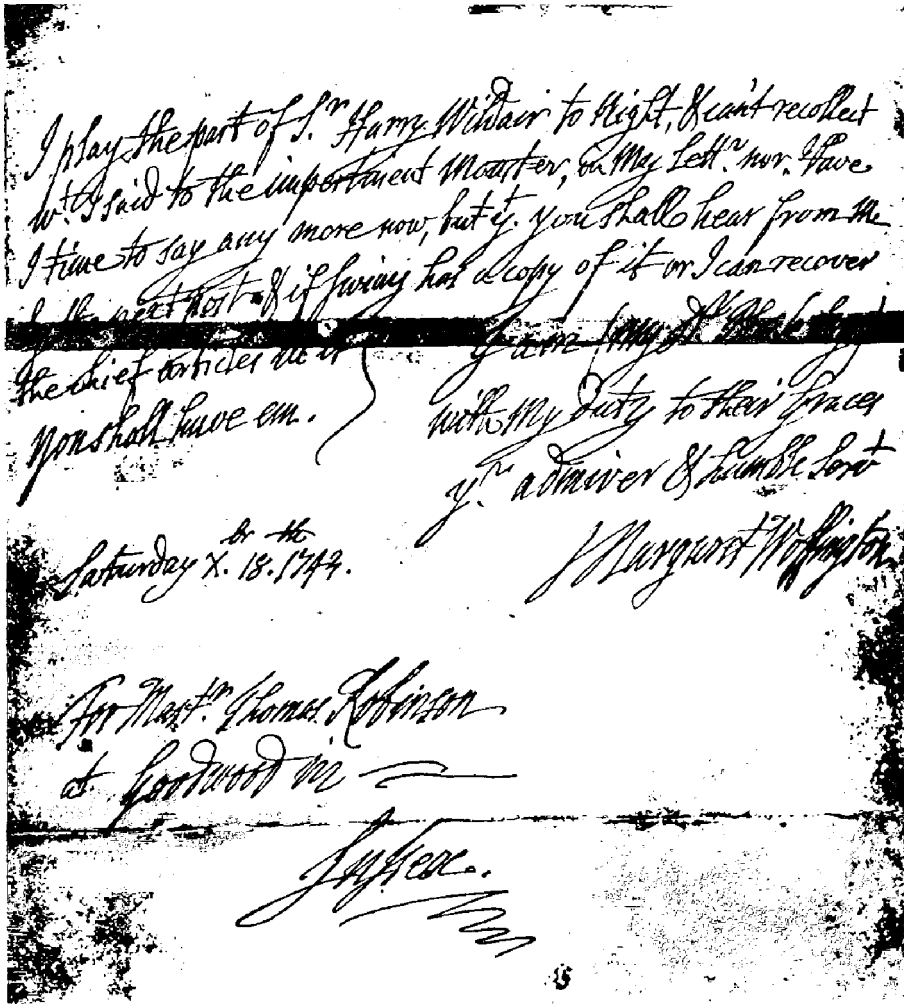 I play the part of S.r Harry Wildair to Night, & can't recollect
w.t I said to the impertinent Monster, in My Lett.r nor. Have
I time to say any more now, but y.t you shall hear from Me
by the next post & if Swiny has a copy of it or I can recover
the chief articles in it I am (my
you shall have em. with My Duty to their Graces
y.r admirer & humble Serv.t
Saturday X.br the 18. 1742. Margaret Woffington
For Mast.r Thomas Robinson
at Goodwood in
Sussex.